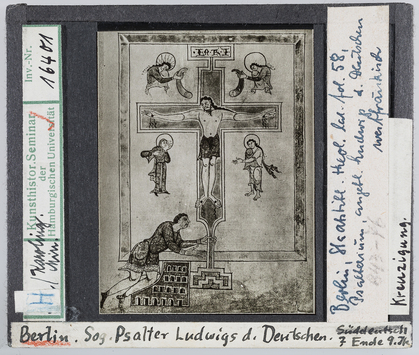 Inv.-Nr. 16401
Kunsthistor. Seminar
der
Hamburgischen Universität
H
Berlin, Staatsbibl. theol. lat. fol. 58,
Psalterium, angebl. Ludwig d. Deutschen
westfränkisch
Kreuzigung.
Berlin. Sog. Psalter Ludwigs d. Deutschen.
Süddeutsch
? Ende 9. Jh.